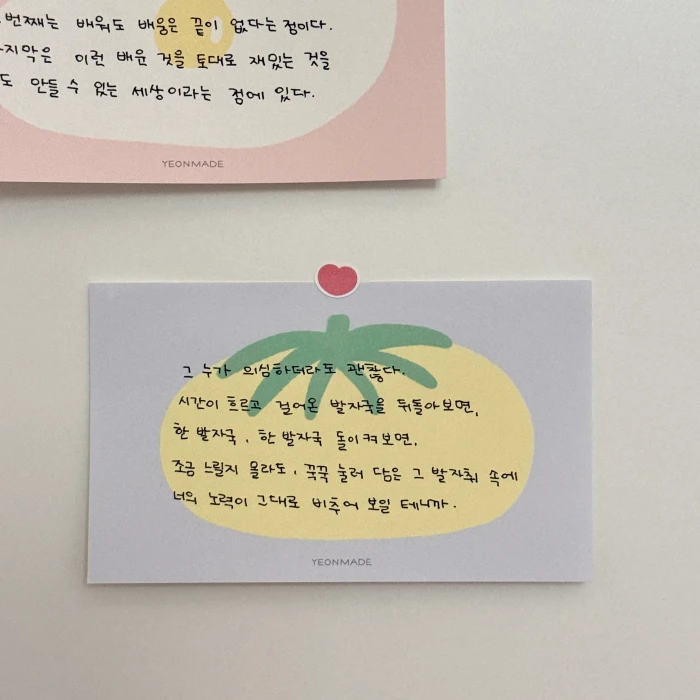 번째는 배워도 배움은 끝이 없다는 점이다.
지막은 이런 배운 것을 토대로 재밌는 것을
도 만들 수 있는 세상이라는 점에 있다.
YEONMADE
그 누가 의심하더라도 괜찮다.
시간이 흐르고 걸어온 발자국을 뒤돌아보면,
한 발자국, 한 발자국 돌이켜보면,
조금 느릴지 몰라도, 꾹꾹 눌러 담은 그 발자취 속에
너의 노력이 그대로 비추어 보일 테니까.
YEONMADE